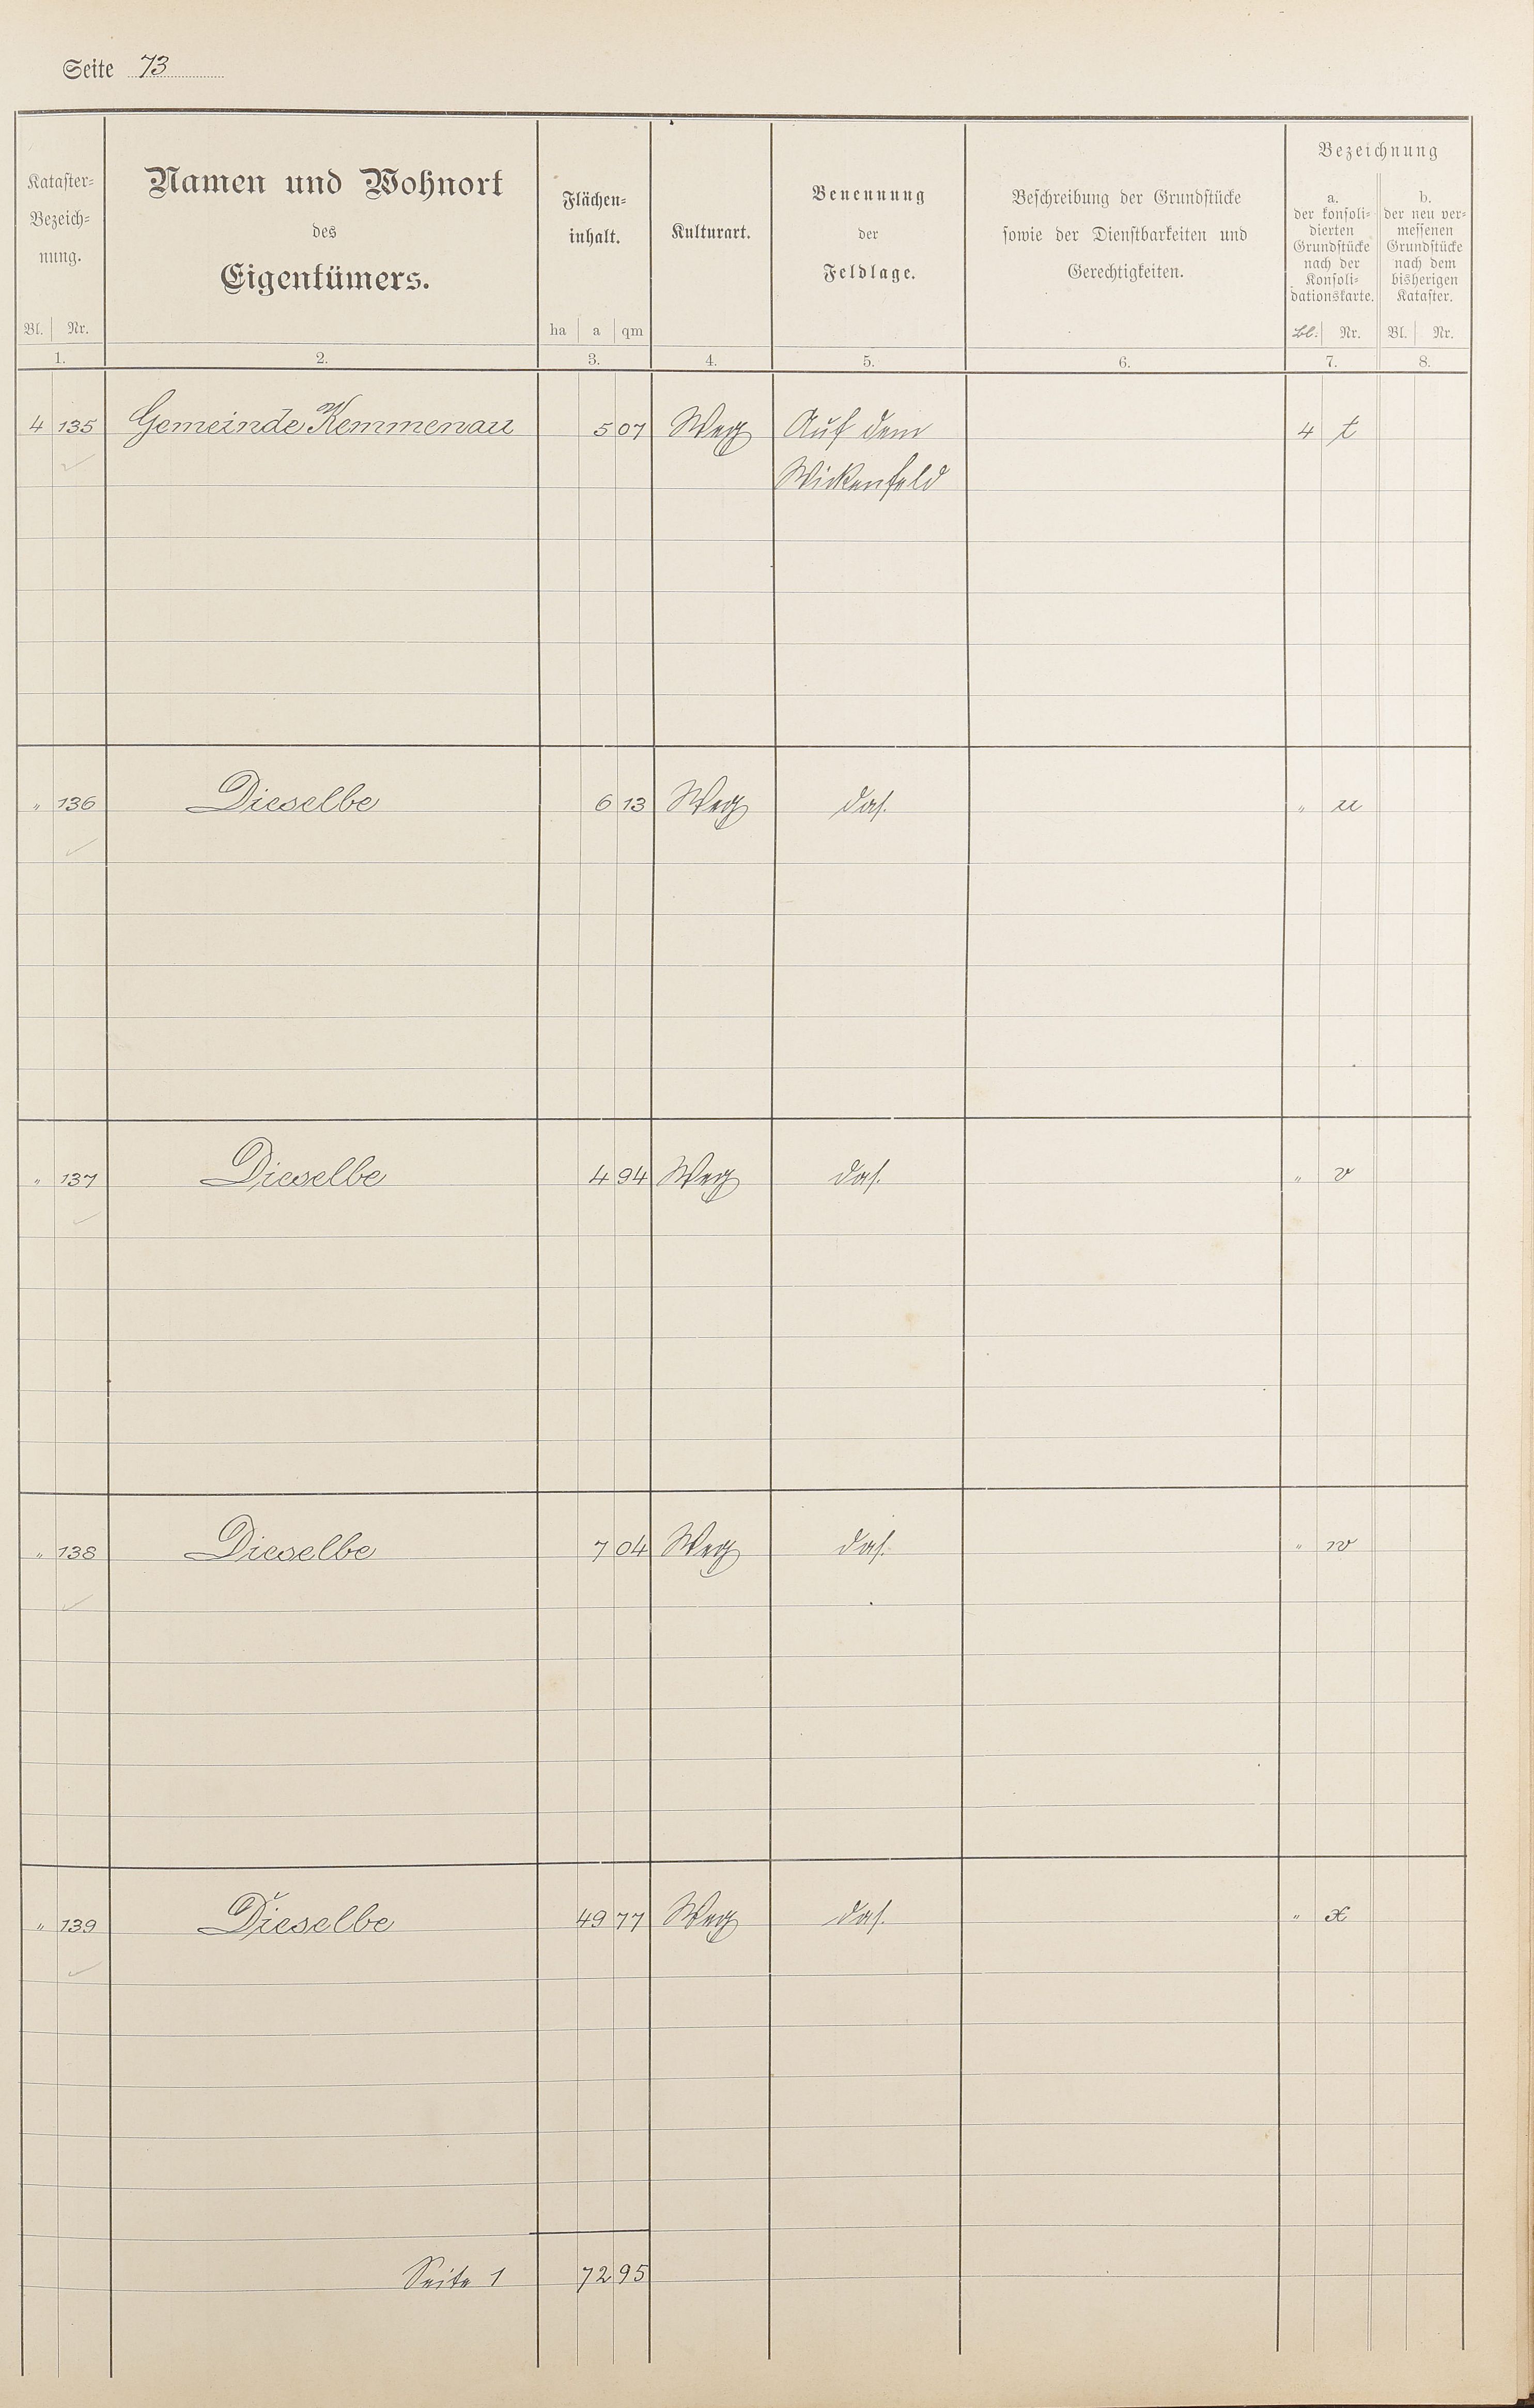 Seite 73
Kataster-
Bezeich-
nung.
Bl. Nr.
1.
Namen und Wohnort
des
Eigentümers.
2.
Flächen-
inhalt.
ha a qm
3.
Kulturart.
4.
Benennung
der
Feldlage.
5.
Beschreibung der Grundstücke
sowie der Dienstbarkeiten und
Gerechtigkeiten.
6.
Bezeichnung
a.
der konsoli-
dierten
Grundstücke
nach der
Konsoli-
dationskarte.
Bl. Nr.
7.
b.
der neu ver-
messenen
Grundstücke
nach dem
bisherigen
Kataster.
Bl. Nr.
8.
4 135 Gemeinde Kemmenau 5 07 Weg Auf dem 4 t
Wickenfeld
" 136 Dieselbe 6 13 Weg das. " u
" 137 Dieselbe 4 94 Weg das. " v
" 138 Dieselbe 7 04 Weg das. " w
" 139 Dieselbe 49 77 Weg das. " x
Seite 1 72 95